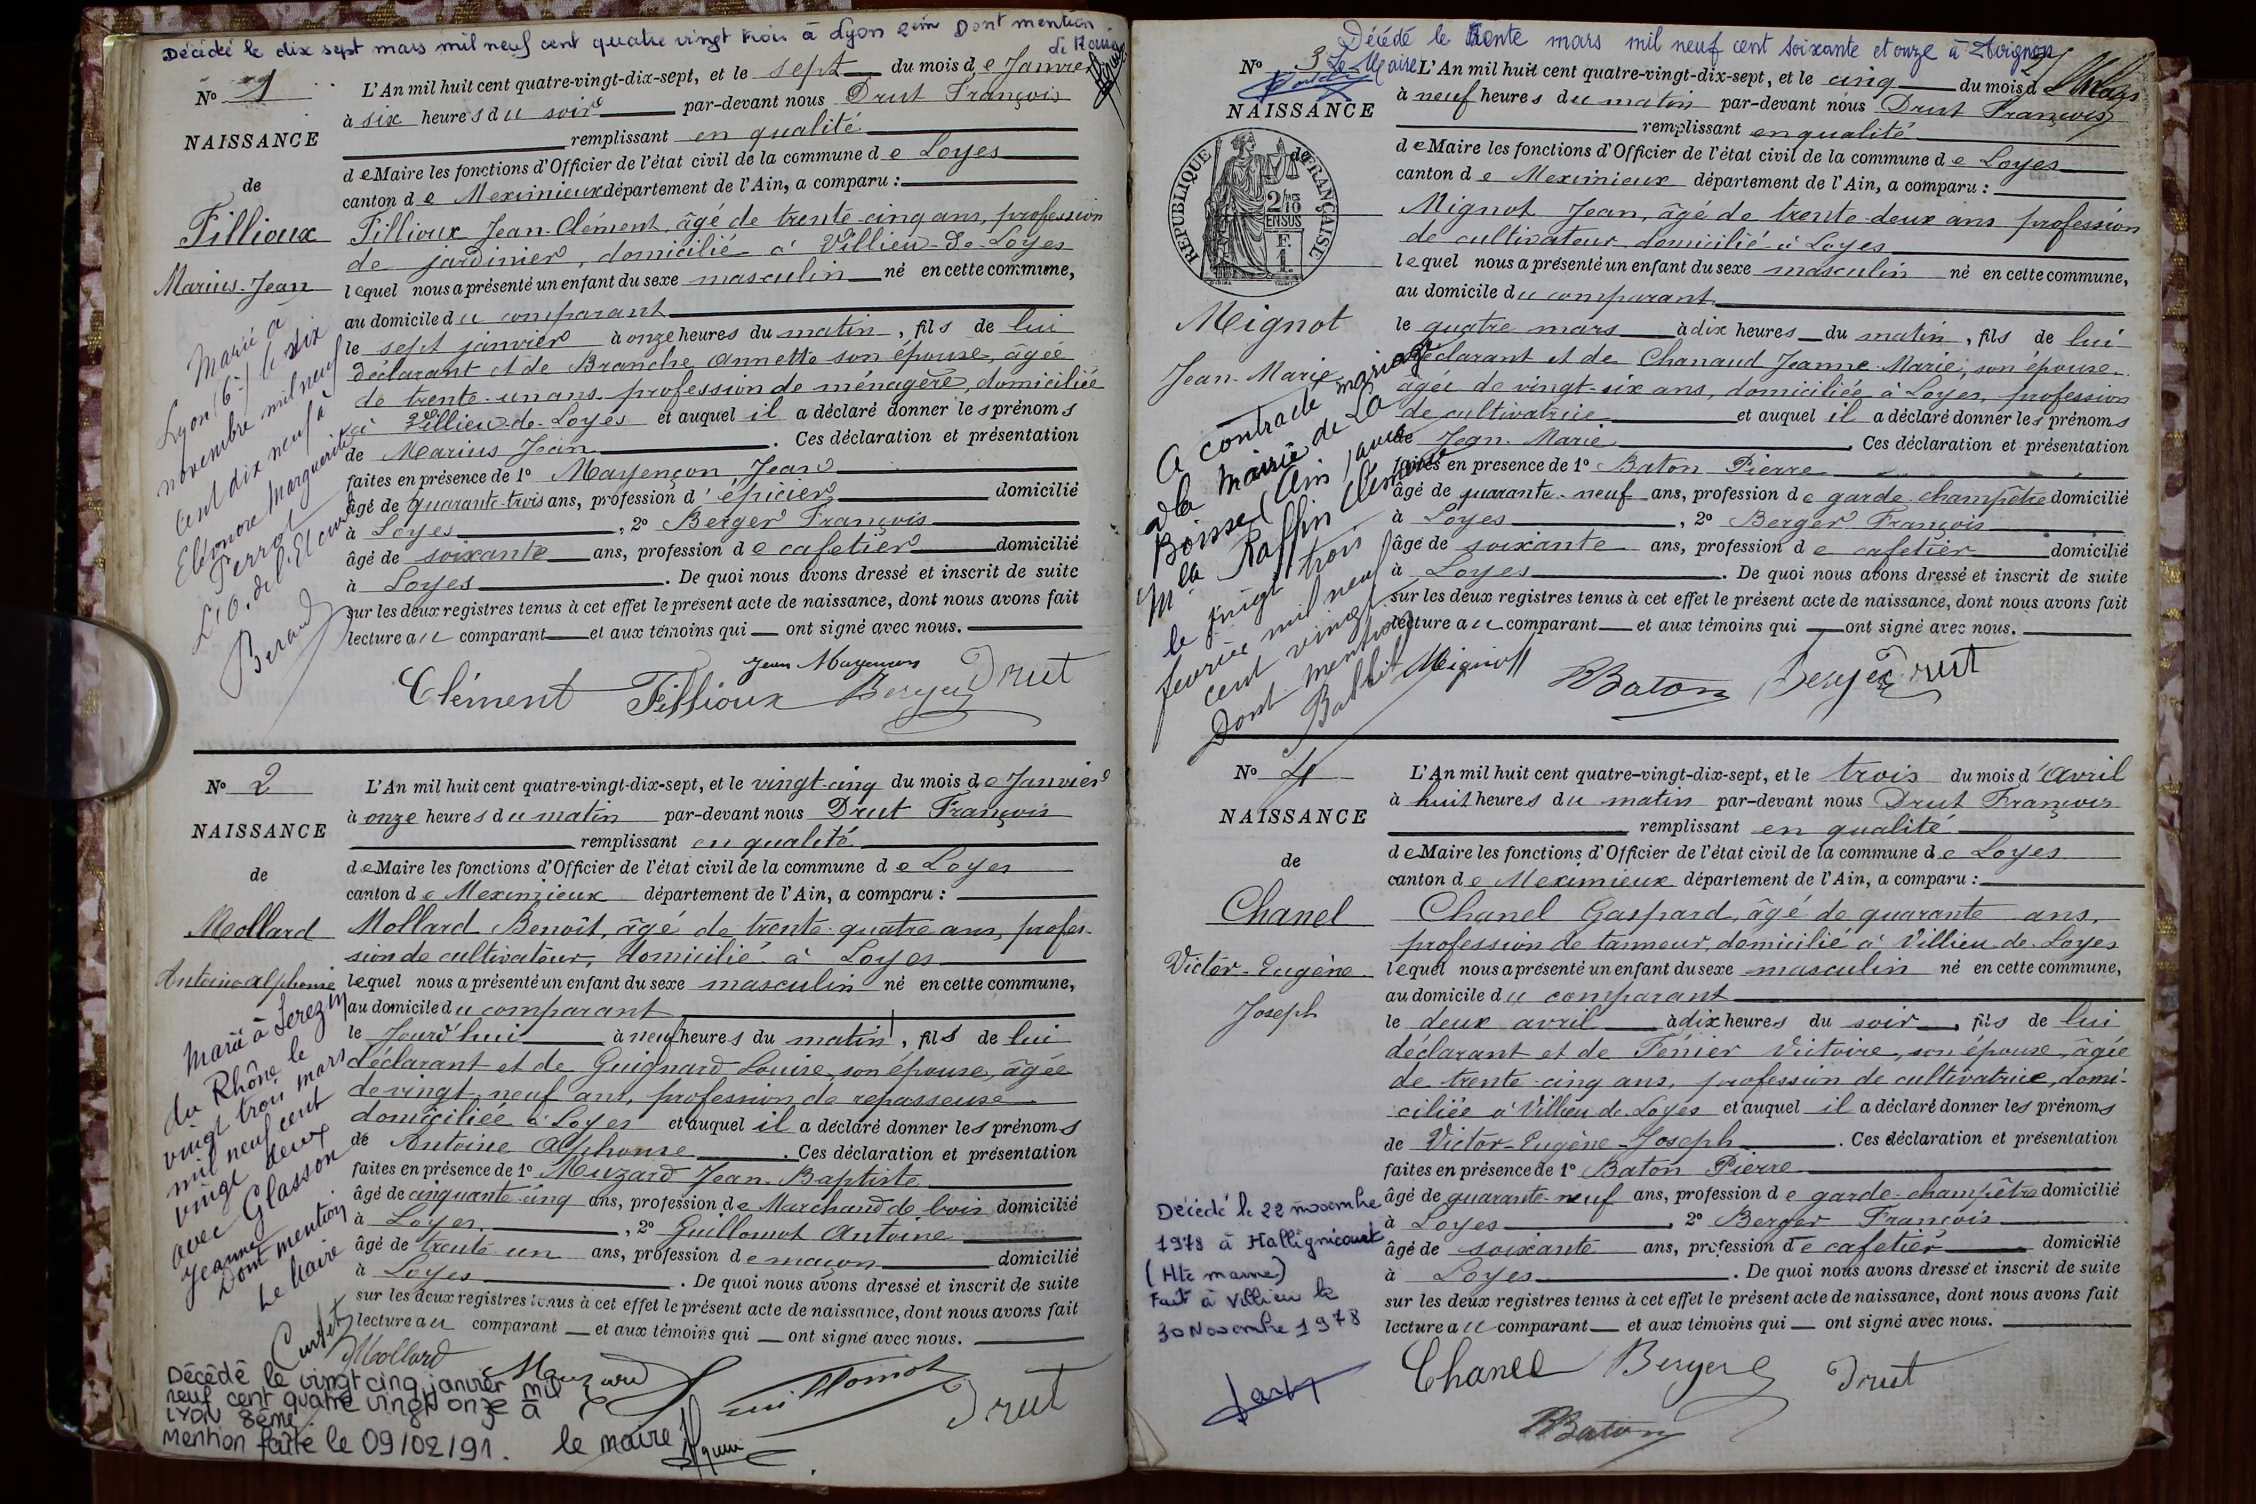 Décédé le dix sept mars mil neuf cent quatre vingt trois à Lyon 2em Dont mention
le Maire
No 1
NAISSANCE
de
Fillioux
Marius-Jean
Marié à
Lyon (6e) le dix
novembre mil neuf
cent dix neuf à
Eléonore Marguerite
Perrot
L'O. de l'Etat civil
Beraud
L'An mil huit cent quatre-vingt-dix-sept, et le sept du mois de Janvier
à six heures du soir par-devant nous Drut François
remplissant en qualité
de Maire les fonctions d'Officier de l'état civil de la commune de Loyes
canton de Meximieux département de l'Ain, a comparu :
Fillioux Jean-Clément, âgé de trente-cinq ans, profession
de jardinier, domicilié à Villieu-de-Loyes
lequel nous a présenté un enfant du sexe masculin né en cette commune,
au domicile du comparant
le sept janvier à onze heures du matin, fils de lui
déclarant et de Branche Annette son épouse, âgée
de trente-un ans, profession de ménagère, domiciliée
à Villieu-de-Loyes et auquel il a déclaré donner les prénoms
de Marius Jean. Ces déclaration et présentation
faites en présence de 1o Mayençon Jean
âgé de quarante-trois ans, profession d'épicier domicilié
à Loyes, 2o Berger François
âgé de soixante ans, profession de cafetier domicilié
à Loyes. De quoi nous avons dressé et inscrit de suite
sur les deux registres tenus à cet effet le présent acte de naissance, dont nous avons fait
lecture au comparant et aux témoins qui ont signé avec nous.
Jean Mayençon
Clément Fillioux Berger Drut
No 2
NAISSANCE
de
Mollard
Antoine Alphonse
Marié à Serezin
du Rhône le
vingt trois mars
mil neuf cent
vingt deux
avec Glasson
Jeanne
Dont mention
Le Maire
Curtet
L'An mil huit cent quatre-vingt-dix-sept, et le vingt-cinq du mois de Janvier
à onze heures du matin par-devant nous Drut François
remplissant en qualité
de Maire les fonctions d'Officier de l'état civil de la commune de Loyes
canton de Meximieux département de l'Ain, a comparu :
Mollard Benoît, âgé de trente-quatre ans, profes-
sion de cultivateur, domicilié à Loyes
lequel nous a présenté un enfant du sexe masculin né en cette commune,
au domicile du comparant
le Jourd'hui à neuf heures du matin, fils de lui
déclarant et de Guignard Louise, son épouse, âgée
de vingt-neuf ans, profession de repasseuse
domiciliée à Loyes et auquel il a déclaré donner les prénoms
de Antoine Alphonse. Ces déclaration et présentation
faites en présence de 1o Muzard Jean-Baptiste
âgé de cinquante-cinq ans, profession de Marchand de bois domicilié
à Loyes, 2o Guillomot Antoine
âgé de trente un ans, profession de maçon domicilié
à Loyes. De quoi nous avons dressé et inscrit de suite
sur les deux registres tenus à cet effet le présent acte de naissance, dont nous avons fait
lecture au comparant et aux témoins qui ont signé avec nous.
Mollard Muzard Guillomot Drut
Décédé le vingt cinq janvier mil
neuf cent quatre vingt onze à
LYON 8ème.
Mention faite le 09/02/91. le maire
Décédé le trente mars mil neuf cent soixante et onze à Avignon
No 3 Le Maire
NAISSANCE
REPUBLIQUE FRANÇAISE
2/10
EN SUS
F.
1.
Mignot
Jean-Marie
A contracté mariage
à la mairie de La
Boisse (Ain) avec
Mlle Raffin Clémence
le vingt trois
février mil neuf
cent vingt
Dont mention
L'An mil huit cent quatre-vingt-dix-sept, et le cinq du mois de Mars
à neuf heures du matin par-devant nous Drut François
remplissant en qualité
de Maire les fonctions d'Officier de l'état civil de la commune de Loyes
canton de Meximieux département de l'Ain, a comparu :
Mignot Jean, âgé de trente-deux ans profession
de cultivateur domicilié à Loyes
lequel nous a présenté un enfant du sexe masculin né en cette commune,
au domicile du comparant
le quatre mars à dix heures du matin, fils de lui
déclarant et de Chanaud Jeanne-Marie, son épouse
âgée de vingt-six ans, domiciliée à Loyes, profession
de cultivatrice et auquel il a déclaré donner les prénoms
de Jean-Marie. Ces déclaration et présentation
faites en présence de 1o Baton Pierre
âgé de quarante-neuf ans, profession de garde champêtre domicilié
à Loyes, 2o Berger François
âgé de soixante ans, profession de cafetier domicilié
à Loyes. De quoi nous avons dressé et inscrit de suite
sur les deux registres tenus à cet effet le présent acte de naissance, dont nous avons fait
lecture au comparant et aux témoins qui ont signé avec nous.
Mignot PBaton Berger Drut
No 4
NAISSANCE
de
Chanel
Victor-Eugène
Joseph
Décédé le 22 novembre
1978 à Hallignicourt
(Hte marne)
Fait à Villieu le
30 Novembre 1978
L'An mil huit cent quatre-vingt-dix-sept, et le trois du mois d'Avril
à huit heures du matin par-devant nous Drut François
remplissant en qualité
de Maire les fonctions d'Officier de l'état civil de la commune de Loyes
canton de Meximieux département de l'Ain, a comparu :
Chanel Gaspard, âgé de quarante ans,
profession de tanneur, domicilié à Villieu-de-Loyes
lequel nous a présenté un enfant du sexe masculin né en cette commune,
au domicile du comparant
le deux avril à dix heures du soir, fils de lui
déclarant et de Fénier Victoire, son épouse, âgée
de trente-cinq ans, profession de cultivatrice, domi-
ciliée à Villieu-de-Loyes et auquel il a déclaré donner les prénoms
de Victor-Eugène-Joseph. Ces déclaration et présentation
faites en présence de 1o Baton Pierre
âgé de quarante-neuf ans, profession de garde-champêtre domicilié
à Loyes, 2o Berger François
âgé de soixante ans, profession de cafetier domicilié
à Loyes. De quoi nous avons dressé et inscrit de suite
sur les deux registres tenus à cet effet le présent acte de naissance, dont nous avons fait
lecture au comparant et aux témoins qui ont signé avec nous.
Chanel Berger Drut
PBaton